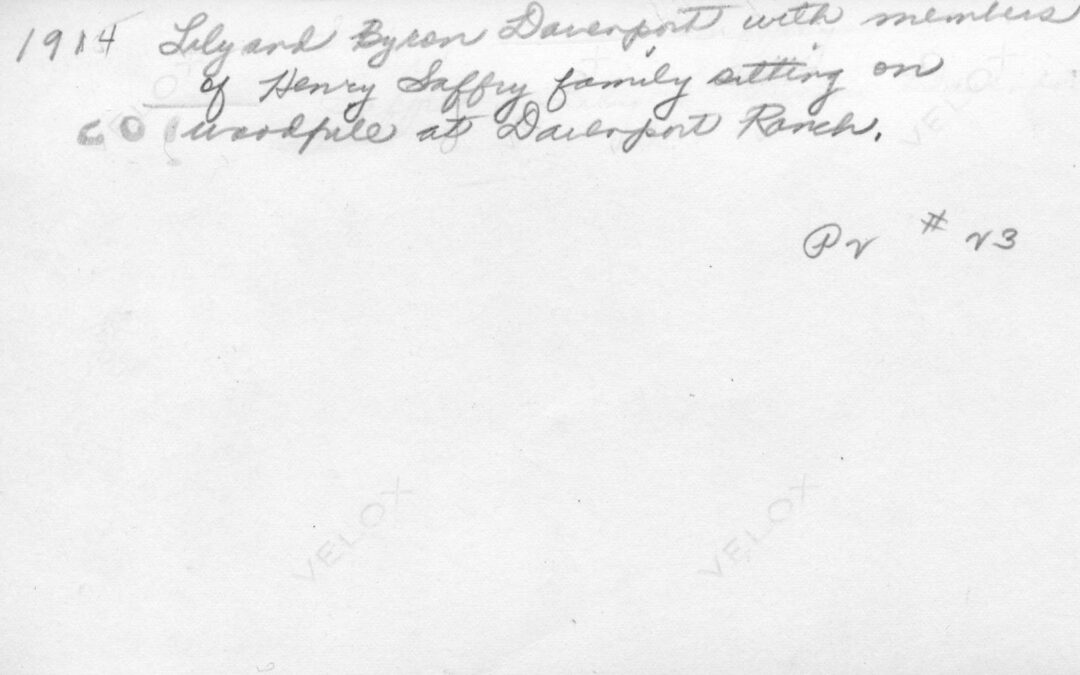 1914 Lily and Byron Davenport with members
of Henry Saffry family sitting on
woodpile at Davenport Ranch.
#23
VELOX VELOX